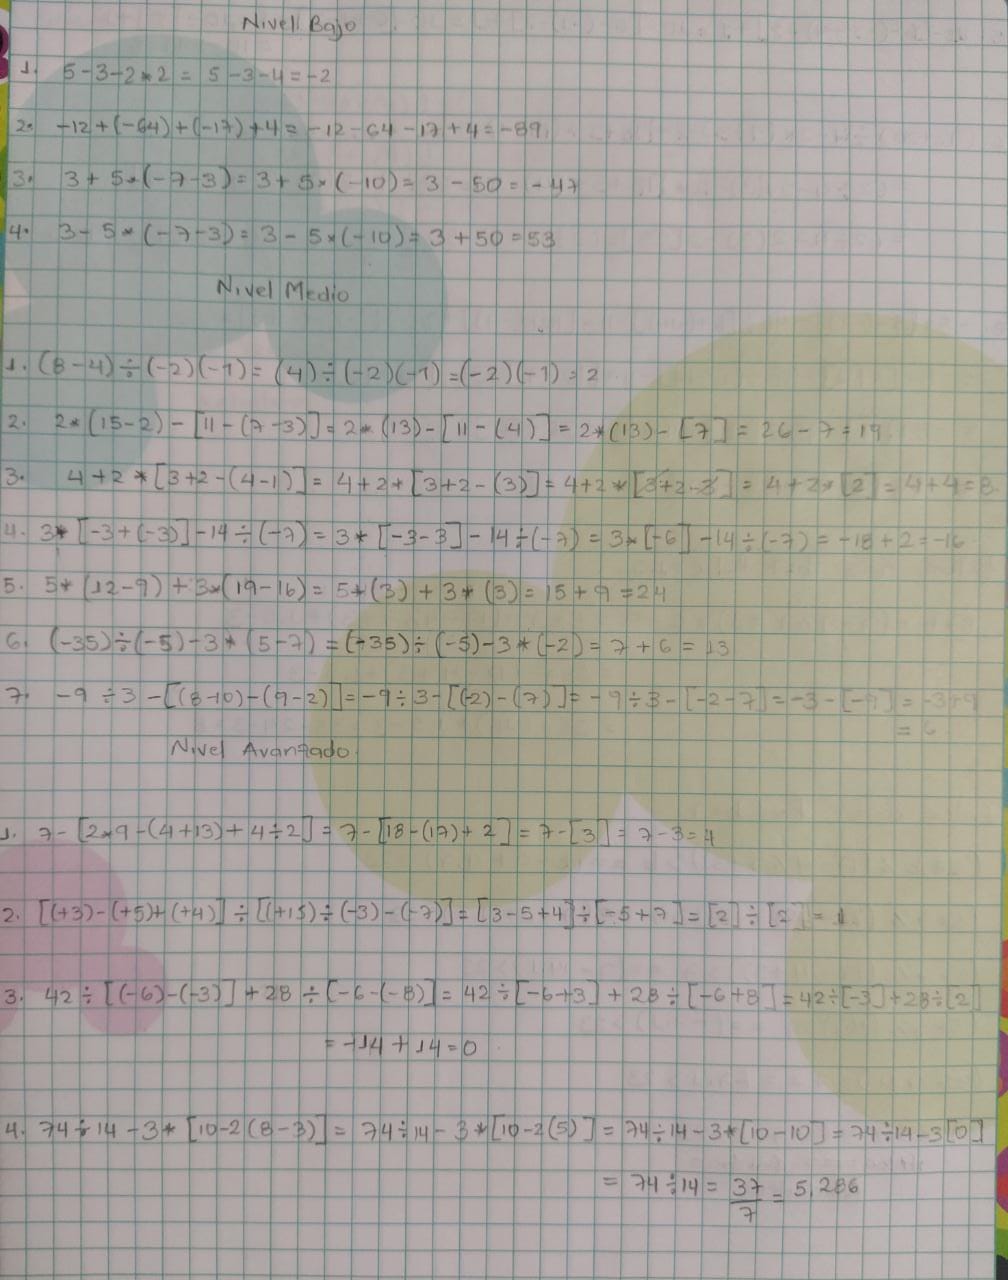 Nivel: Bajo
1. 5-3-2*2 = 5-3-4=-2
2. -12+(-64)+(-17)+4=-12-64-17+4=-89
3. 3+5*(-7-3)=3+5*(-10)=3-50=-47
4. 3-5*(-7-3)=3-5*(-10)=3+50=53
Nivel Medio
1. (8-4)÷(-2)(-1)=(4)÷(-2)(-1)=(-2)(-1)=2
2. 2*(15-2)-[11-(7-3)]=2*(13)-[11-(4)]=2*(13)-[7]=26-7=19
3. 4+2*[3+2-(4-1)]=4+2*[3+2-(3)]=4+2*[3+2-3]=4+2*[2]=4+4=8
4. 3*[-3+(-3)]-14÷(-7)=3*[-3-3]-14÷(-7)=3*[-6]-14÷(-7)=-18+2=-16
5. 5*(12-9)+3*(19-16)=5*(3)+3*(3)=15+9=24
6. (-35)÷(-5)-3*(5-7)=(-35)÷(-5)-3*(-2)=7+6=13
7. -9÷3-[(8-10)-(9-2)]=-9÷3-[(-2)-(7)]=-9÷3-[-2-7]=-3-[-9]=-3+9
= 6
Nivel Avanzado
1. 7-[2*9-(4+13)+4÷2]=7-[18-(17)+2]=7-[3]=7-3=4
2. [(+3)-(+5)+(+4)]÷[(+15)÷(-3)-(-7)]=[3-5+4]÷[-5+7]=[2]÷[2]=1
3. 42÷[(-6)-(-3)]+28÷[-6-(-8)]=42÷[-6+3]+28÷[-6+8]=42÷[-3]+28÷[2]
=-14+14=0
4. 74÷14-3*[10-2(8-3)]=74÷14-3*[10-2(5)]=74÷14-3*[10-10]=74÷14-3[0]
= 74÷14=37/7=5,286